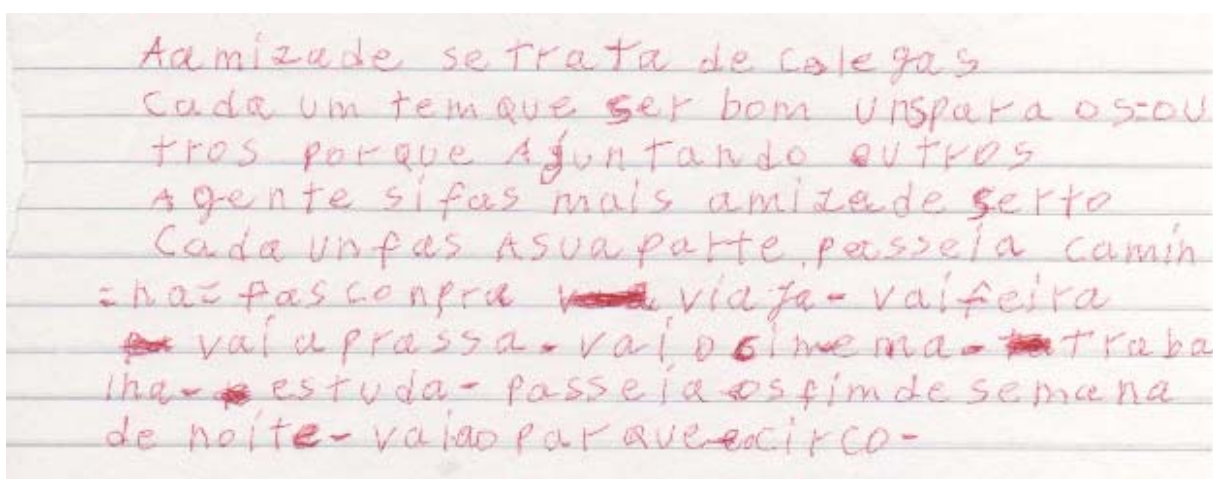 Aamizade se trata de colegas
Cada um tem que ser bom unspara os=ou
tros porque Ajuntando outros
Agente sifas mais amizade serto
Cada unfas Asuaparte, passeia camin
=ha=fasconpra viaja-vaifeira
vaiaprassa-vaiosimema-traba
lha-estuda-passeia osfimde semana
de noite-vaiaoparqueecirco-